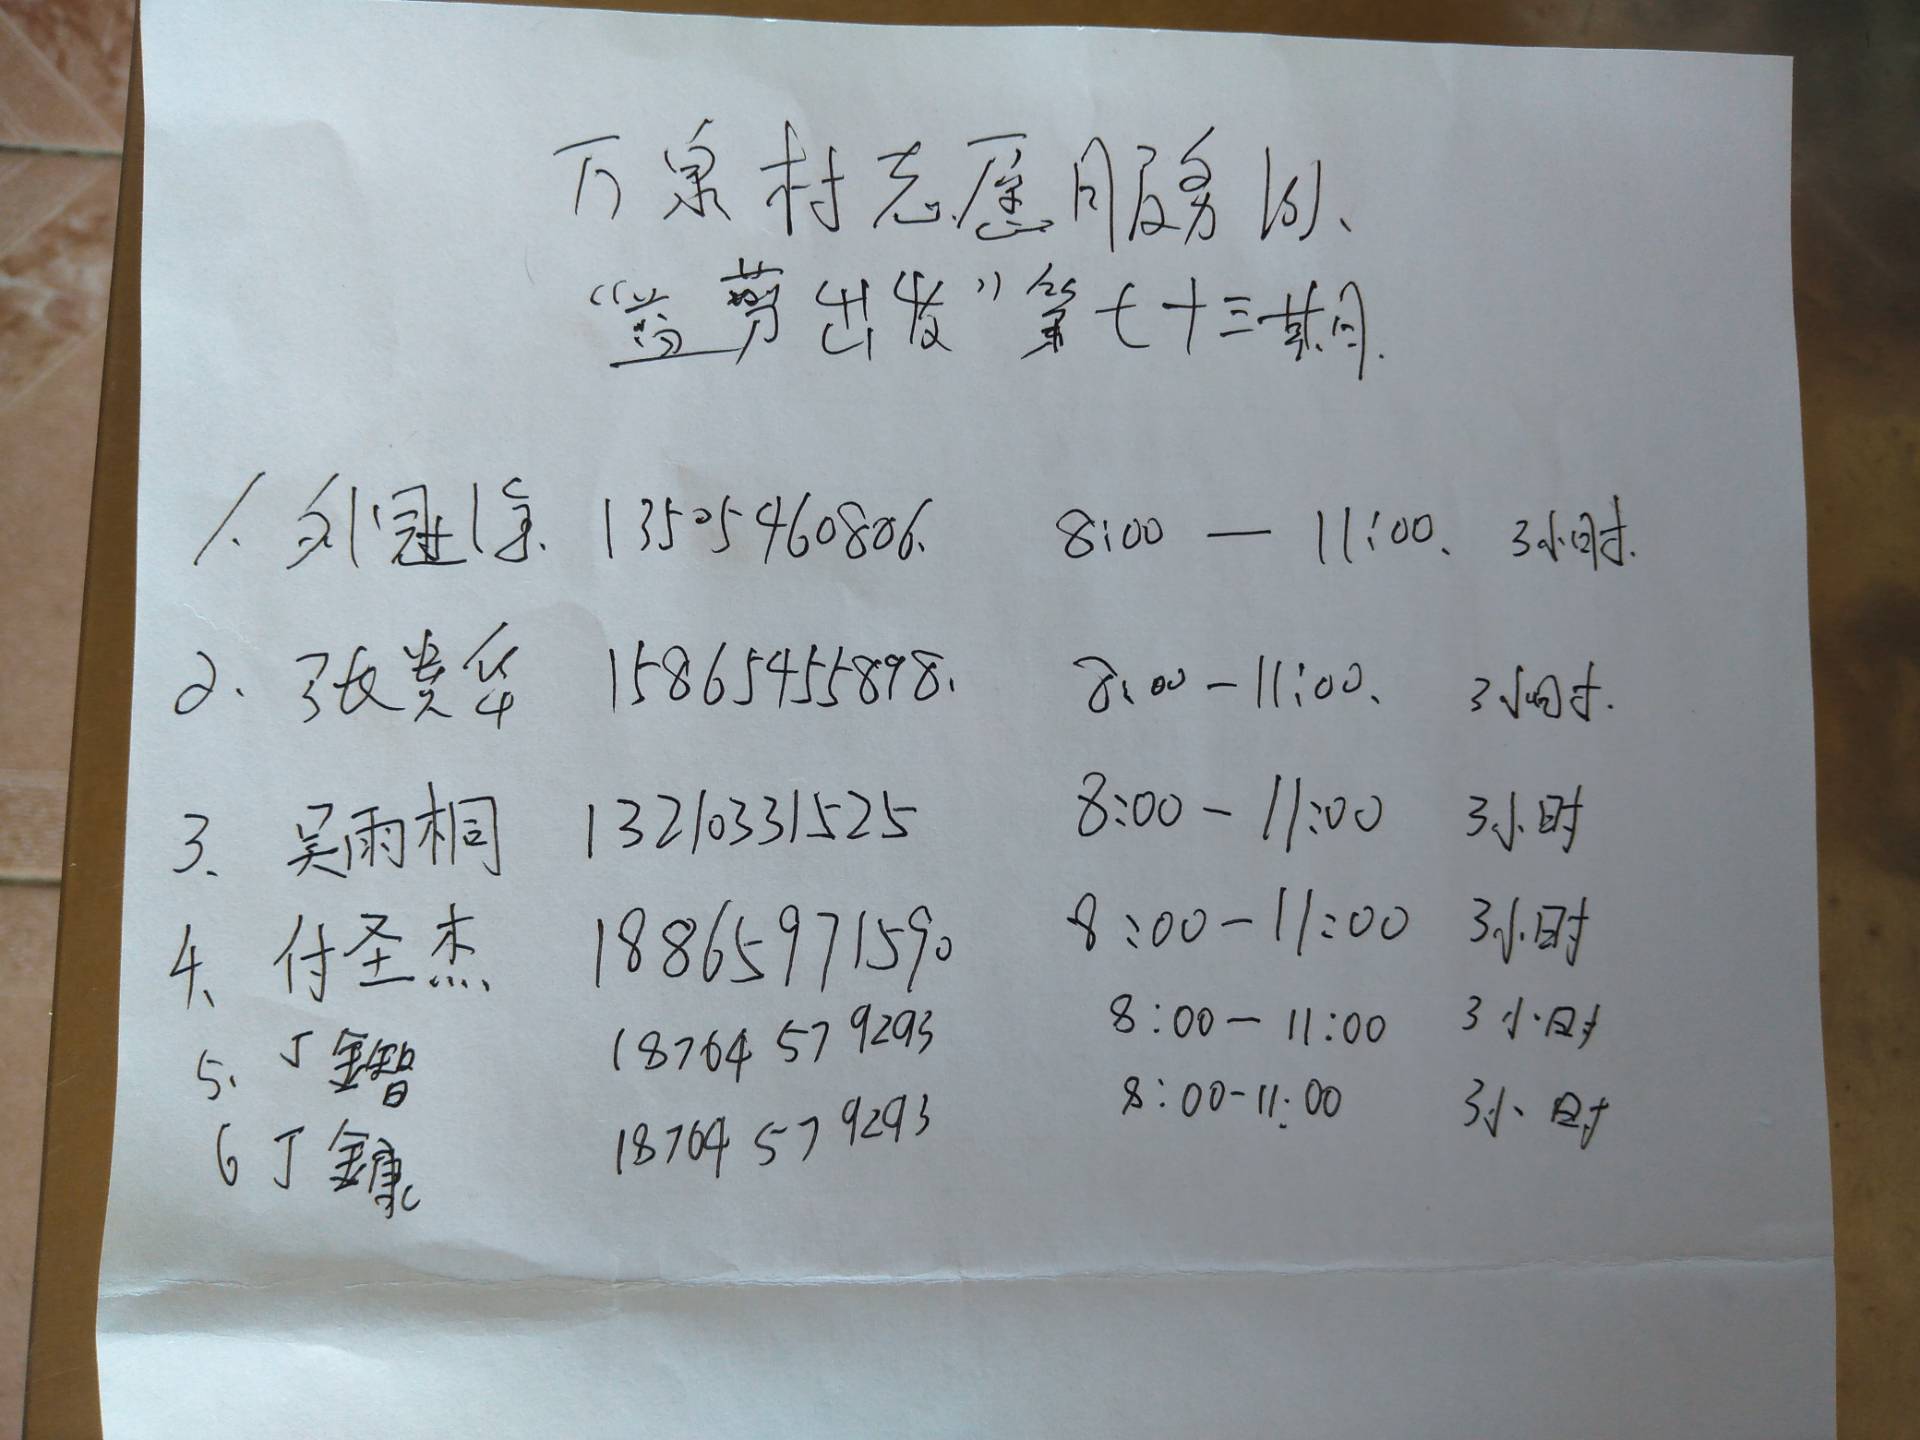 万泉村志愿服务队、
“益剪出发”第七十三期.
1. 刘冠 13505460806. 8:00 — 11:00、 3小时.
2. 张贵华 15865455898. 8:00-11:00、 3小时.
3. 吴雨桐 13210331525 8:00-11:00 3小时
4、 付圣杰 18865971590 8:00-11:00 3小时
5. 丁鑫智 18764579293 8:00-11:00 3小时
6 丁鑫康 18764579293 8:00-11:00 3小时